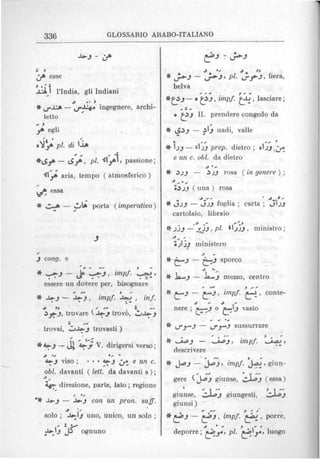 336 GLOSSARIO ARABO-ITALIANO
هنّ - وجد
وحش - ودع
هنّ esse
الهند l'India, gli Indiani
* هندس — مهندس ingegnere, archi-
tetto
هو egli
هؤلاء pl. di هذا
* هوى — هوى, pl. أهواء, passione;
هواء aria, tempo (atmosferico)
هي essa
* هيب — هات porta (imperativo)
و
و cong. e
* وجب — وجب على, impf. يجب,
essere un dovere per, bisognare
* وجد — وجد, impf. يجد, inf.
وجود, trovare (وجد trovò, وجدت
trovai, وجدت trovasti)
* وجه — توجّه إلى V. dirigersi verso;
وجه viso; ... من وجه e un c.
obl. davanti (lett. da davanti a);
جهة direzione, parte, lato; regione
* وحد — وحد con un pron. suff.
solo; واحد uno, unico, un solo;
كل واحد ognuno
* وحش — وحش, pl. وحوش, fiera,
belva
* ودع — ودع, impf. يدع, lasciare;
ودّع II. prendere congedo da
* ودى — واد uadi, valle
* ورأ — وراء prep. dietro; من وراء
e un c. obl. da dietro
* ورد — ورد rosa (in genere);
وردة (una) rosa
* ورق — ورق foglia; carta; ورّاق
cartolaio, libraio
* وزر — وزير, pl. وزراء, ministro;
وزارة ministero
* وسخ — وسخ sporco
* وسط — وسط mezzo, centro
* وسع — وسع, impf. يسع, conte-
nere; وسيع o واسع vasto
* وسوس — وسوس sussurrare
* وصف — وصف, impf. يصف,
descrivere
* وصل — وصل, impf. يصل, giun-
gere (وصل giunse, وصلت (essa)
giunse, وصلت giungesti, وصلت
giunsi)
* وضع — وضع, impf. يضع, porre,
deporre; موضع, pl. مواضع, luogo